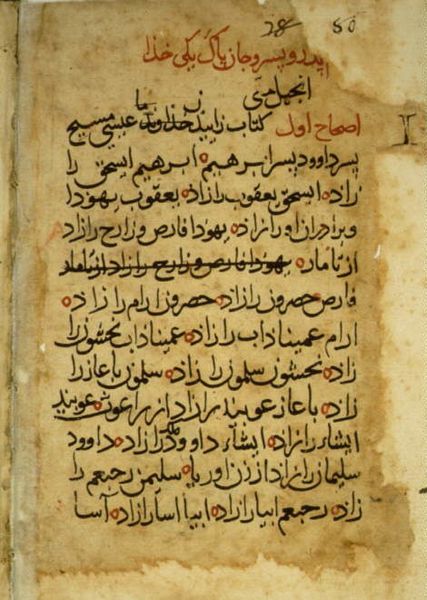 28 50
پدر و پسر و جان پاک یکی خدا
انجیل متی
اصحاح اول کتاب زاییدن خداوند ما عیسی مسیح
پسر داوود پسر ابرهیم ابرهیم اسحق را
زاده اسحق یعقوب را زاده یعقوب یهودا
و برادران او را زاده یهودا فارص و زارح را زاد
از تامار یهودا فارص و زارح را زاد از تامار
فارص حصرون زاده حصرون ارام را زاده
ارام عمیناداب را زاده عمیناداب نحشون را
زاده نحشون سلمون را زاده سلمون باعاز را
زاده باعاز عوبید را زاد از راعوث عوبید
ایشاء را زاده ایشاء داوود ملک را زاده داوود
سلیمان را زاد از زن اوریا سلیمن رحبعم را
زاده رحبعم ابیا را زاده ابیا اسا را زاده آسا